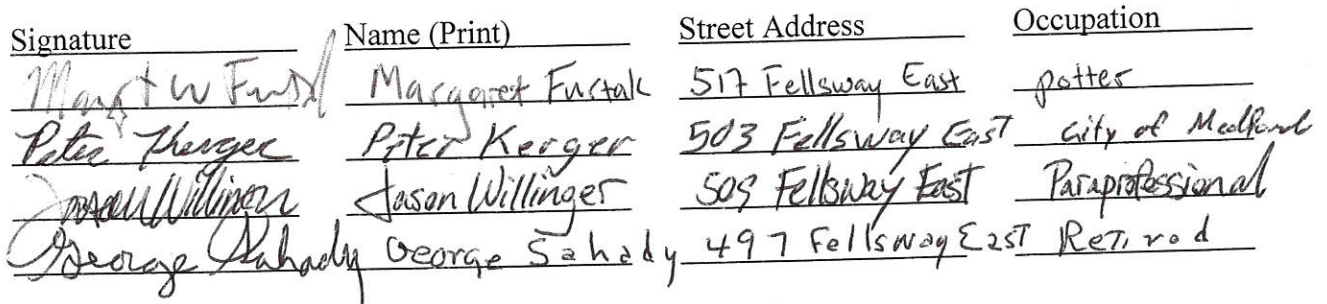 Signature Name (Print) Street Address Occupation
Margaret Furtak 517 Fellsway East potter
Peter Kerger Peter Kerger 503 Fellsway East City of Medford
Jason Willinger Jason Willinger 509 Fellsway East Paraprofessional
George Sahady George Sahady 497 Fellsway East Retired